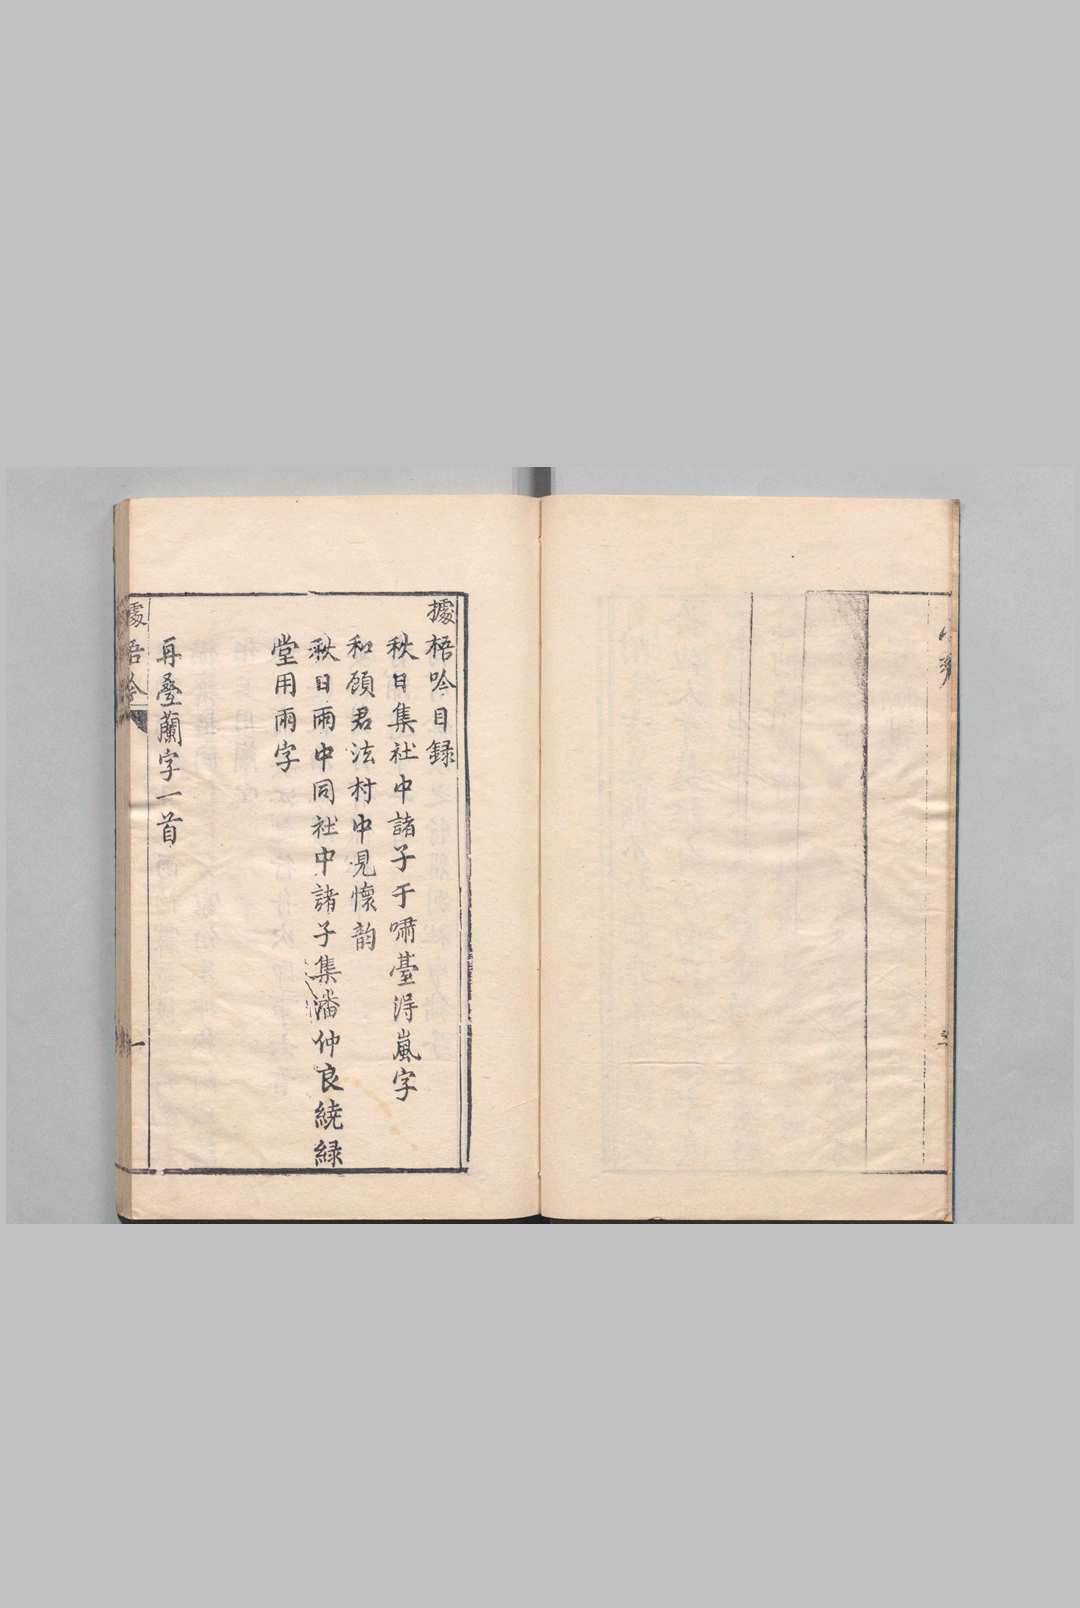 據梧吟目録
秋日集社中諸子于嘯臺得嵐字
和顧君法村中見懷韵
秋日雨中同社中諸子集潘仲良繞緑
堂用雨字
再疊蘭字一首
據梧吟
一